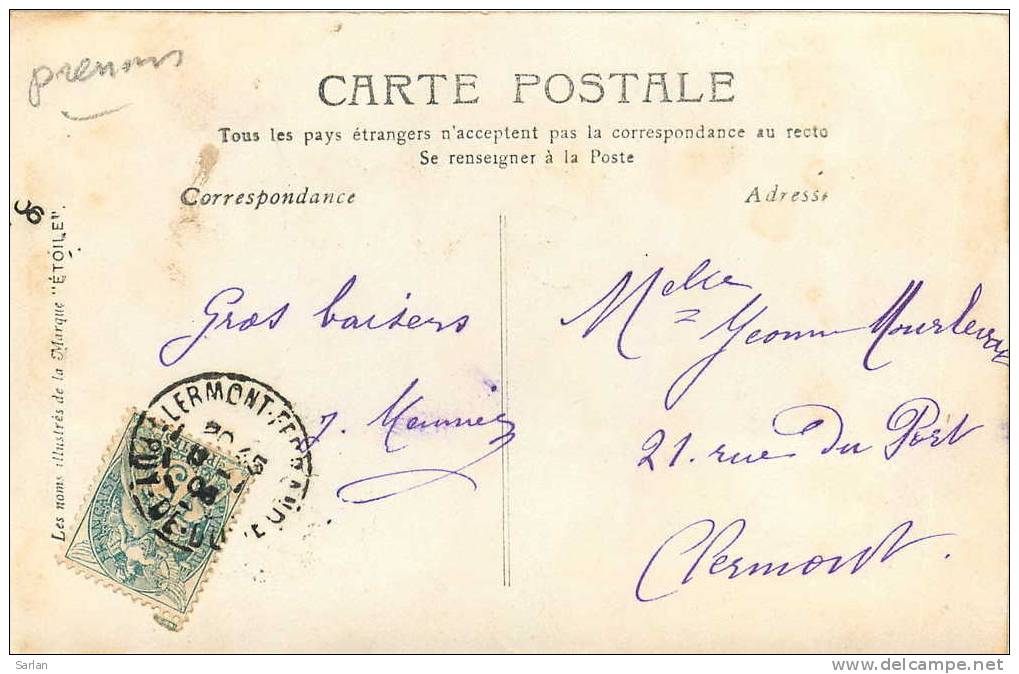 prenoms
CARTE POSTALE
Tous les pays étrangers n'acceptent pas la correspondance au recto
Se renseigner à la Poste
Correspondance
Adresse
Les noms illustrés de la Marque "ÉTOILE".
Gros baisers
J. Meunier
Melle Yvonne
21. rue Du Port
Clermont.
CLERMONT-FERRAND
PUY-DE-DOME
Sarlan
delcampe.net